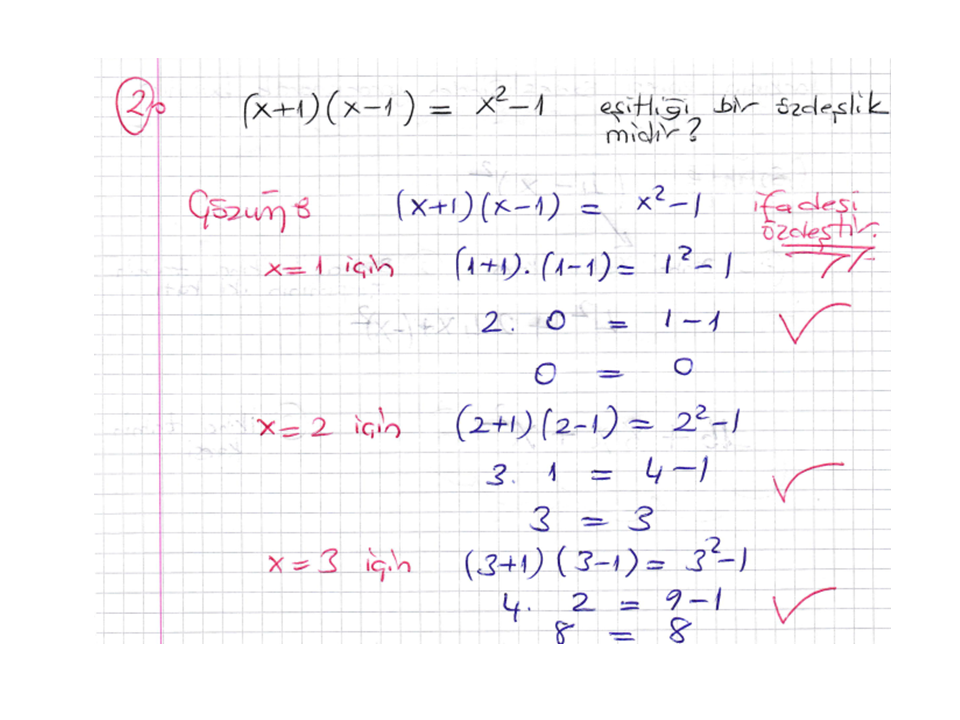 2. (x+1)(x-1) = x²-1 eşitliği bir özdeşlik
midir?
Çözüm: (x+1)(x-1) = x²-1 ifadesi
özdeştir.
x=1 için (1+1).(1-1) = 1²-1
2. 0 = 1-1 ✓
0 = 0
x=2 için (2+1)(2-1) = 2²-1
3. 1 = 4-1 ✓
3 = 3
x=3 için (3+1)(3-1) = 3²-1
4. 2 = 9-1 ✓
8 = 8